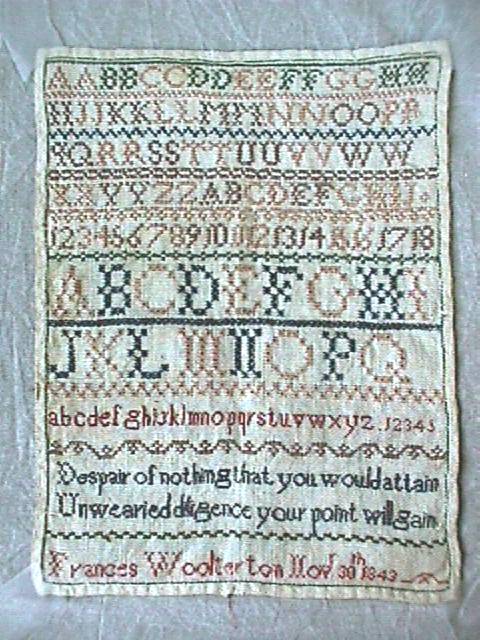 AABBCCDDEEFFGGHH
IIJJKKLLMMNNOOPP
QQRRSSTTUUVVWW
XXYYZZABCDEFGHI
1234667891011121314151617 18
ABCDEFGHI
JKLMNOPQ
abcdefghijklmnopqrstuvwxyz.12345
Despair of nothing that you would attain
Unwearied diligence your point will gain
Frances Woolterton Nov 30th 1843